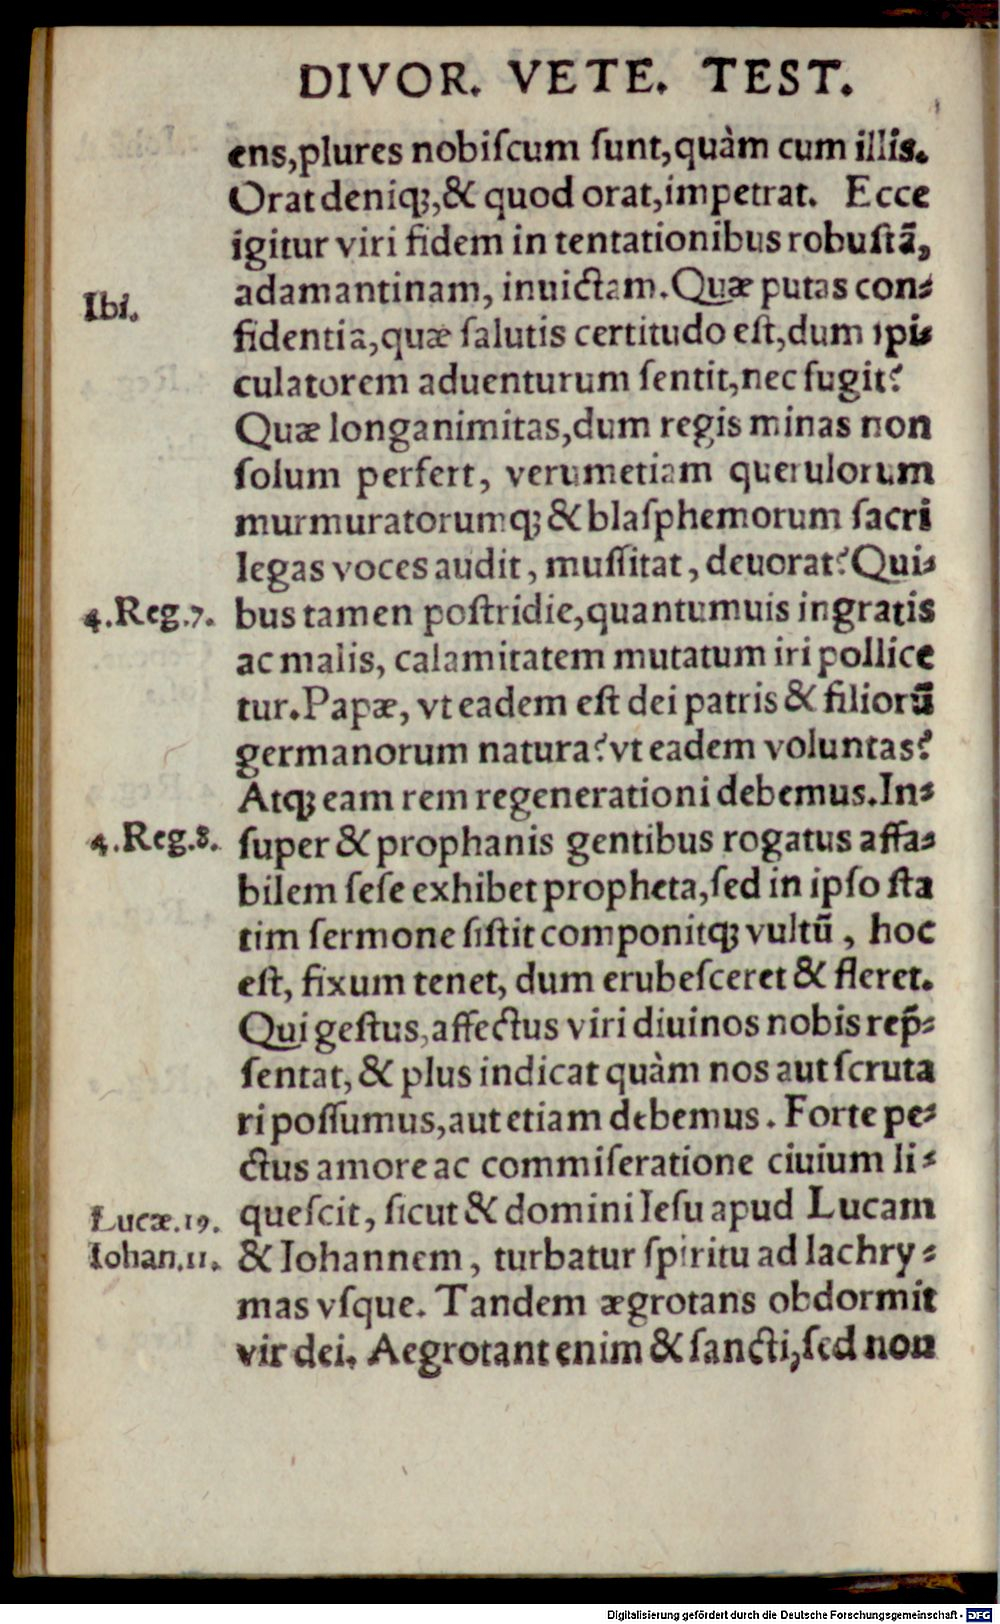 DIVOR. VETE. TEST.
ens,plures nobiſcum ſunt,quàm cum illis.
Orat deniqꝫ,& quod orat,impetrat. Ecce
igitur viri fidem in tentationibus robuſtã,
Ibi.
adamantinam, inuictam.Quæ putas con⸗
fidentiã,quæ ſalutis certitudo eſt,dum ſpi⸗
culatorem aduenturum ſentit,nec fugit?
Quæ longanimitas,dum regis minas non
ſolum perfert, verumetiam querulorum
murmuratorumqꝫ & blaſphemorum ſacri
legas voces audit, muſſitat, deuorat?Qui⸗
4.Reg.7.
bus tamen poſtridie,quantumuis ingratis
ac malis, calamitatem mutatum iri pollice
tur.Papæ, vt eadem eſt dei patris & filiorũ
germanorum natura?vt eadem voluntas?
Atqꝫ eam rem regenerationi debemus.In⸗
4.Reg.8.
ſuper & prophanis gentibus rogatus affa⸗
bilem ſeſe exhibet propheta,ſed in ipſo ſta
tim ſermone ſiſtit componitqꝫ vultũ, hoc
eſt, fixum tenet, dum erubeſceret & fleret.
Qui geſtus,affectus viri diuinos nobis rep̃⸗
ſentat, & plus indicat quàm nos aut ſcruta
ri poſſumus,aut etiam debemus. Forte pe⸗
ctus amore ac commiſeratione ciuium li⸗
Lucæ.19.
queſcit, ſicut & domini Ieſu apud Lucam
Iohan.11.
& Iohannem, turbatur ſpiritu ad lachry⸗
mas vſque. Tandem ægrotans obdormit
vir dei. Aegrotant enim & ſancti,ſed non
Digitalisierung gefördert durch die Deutsche Forschungsgemeinschaft - DFG